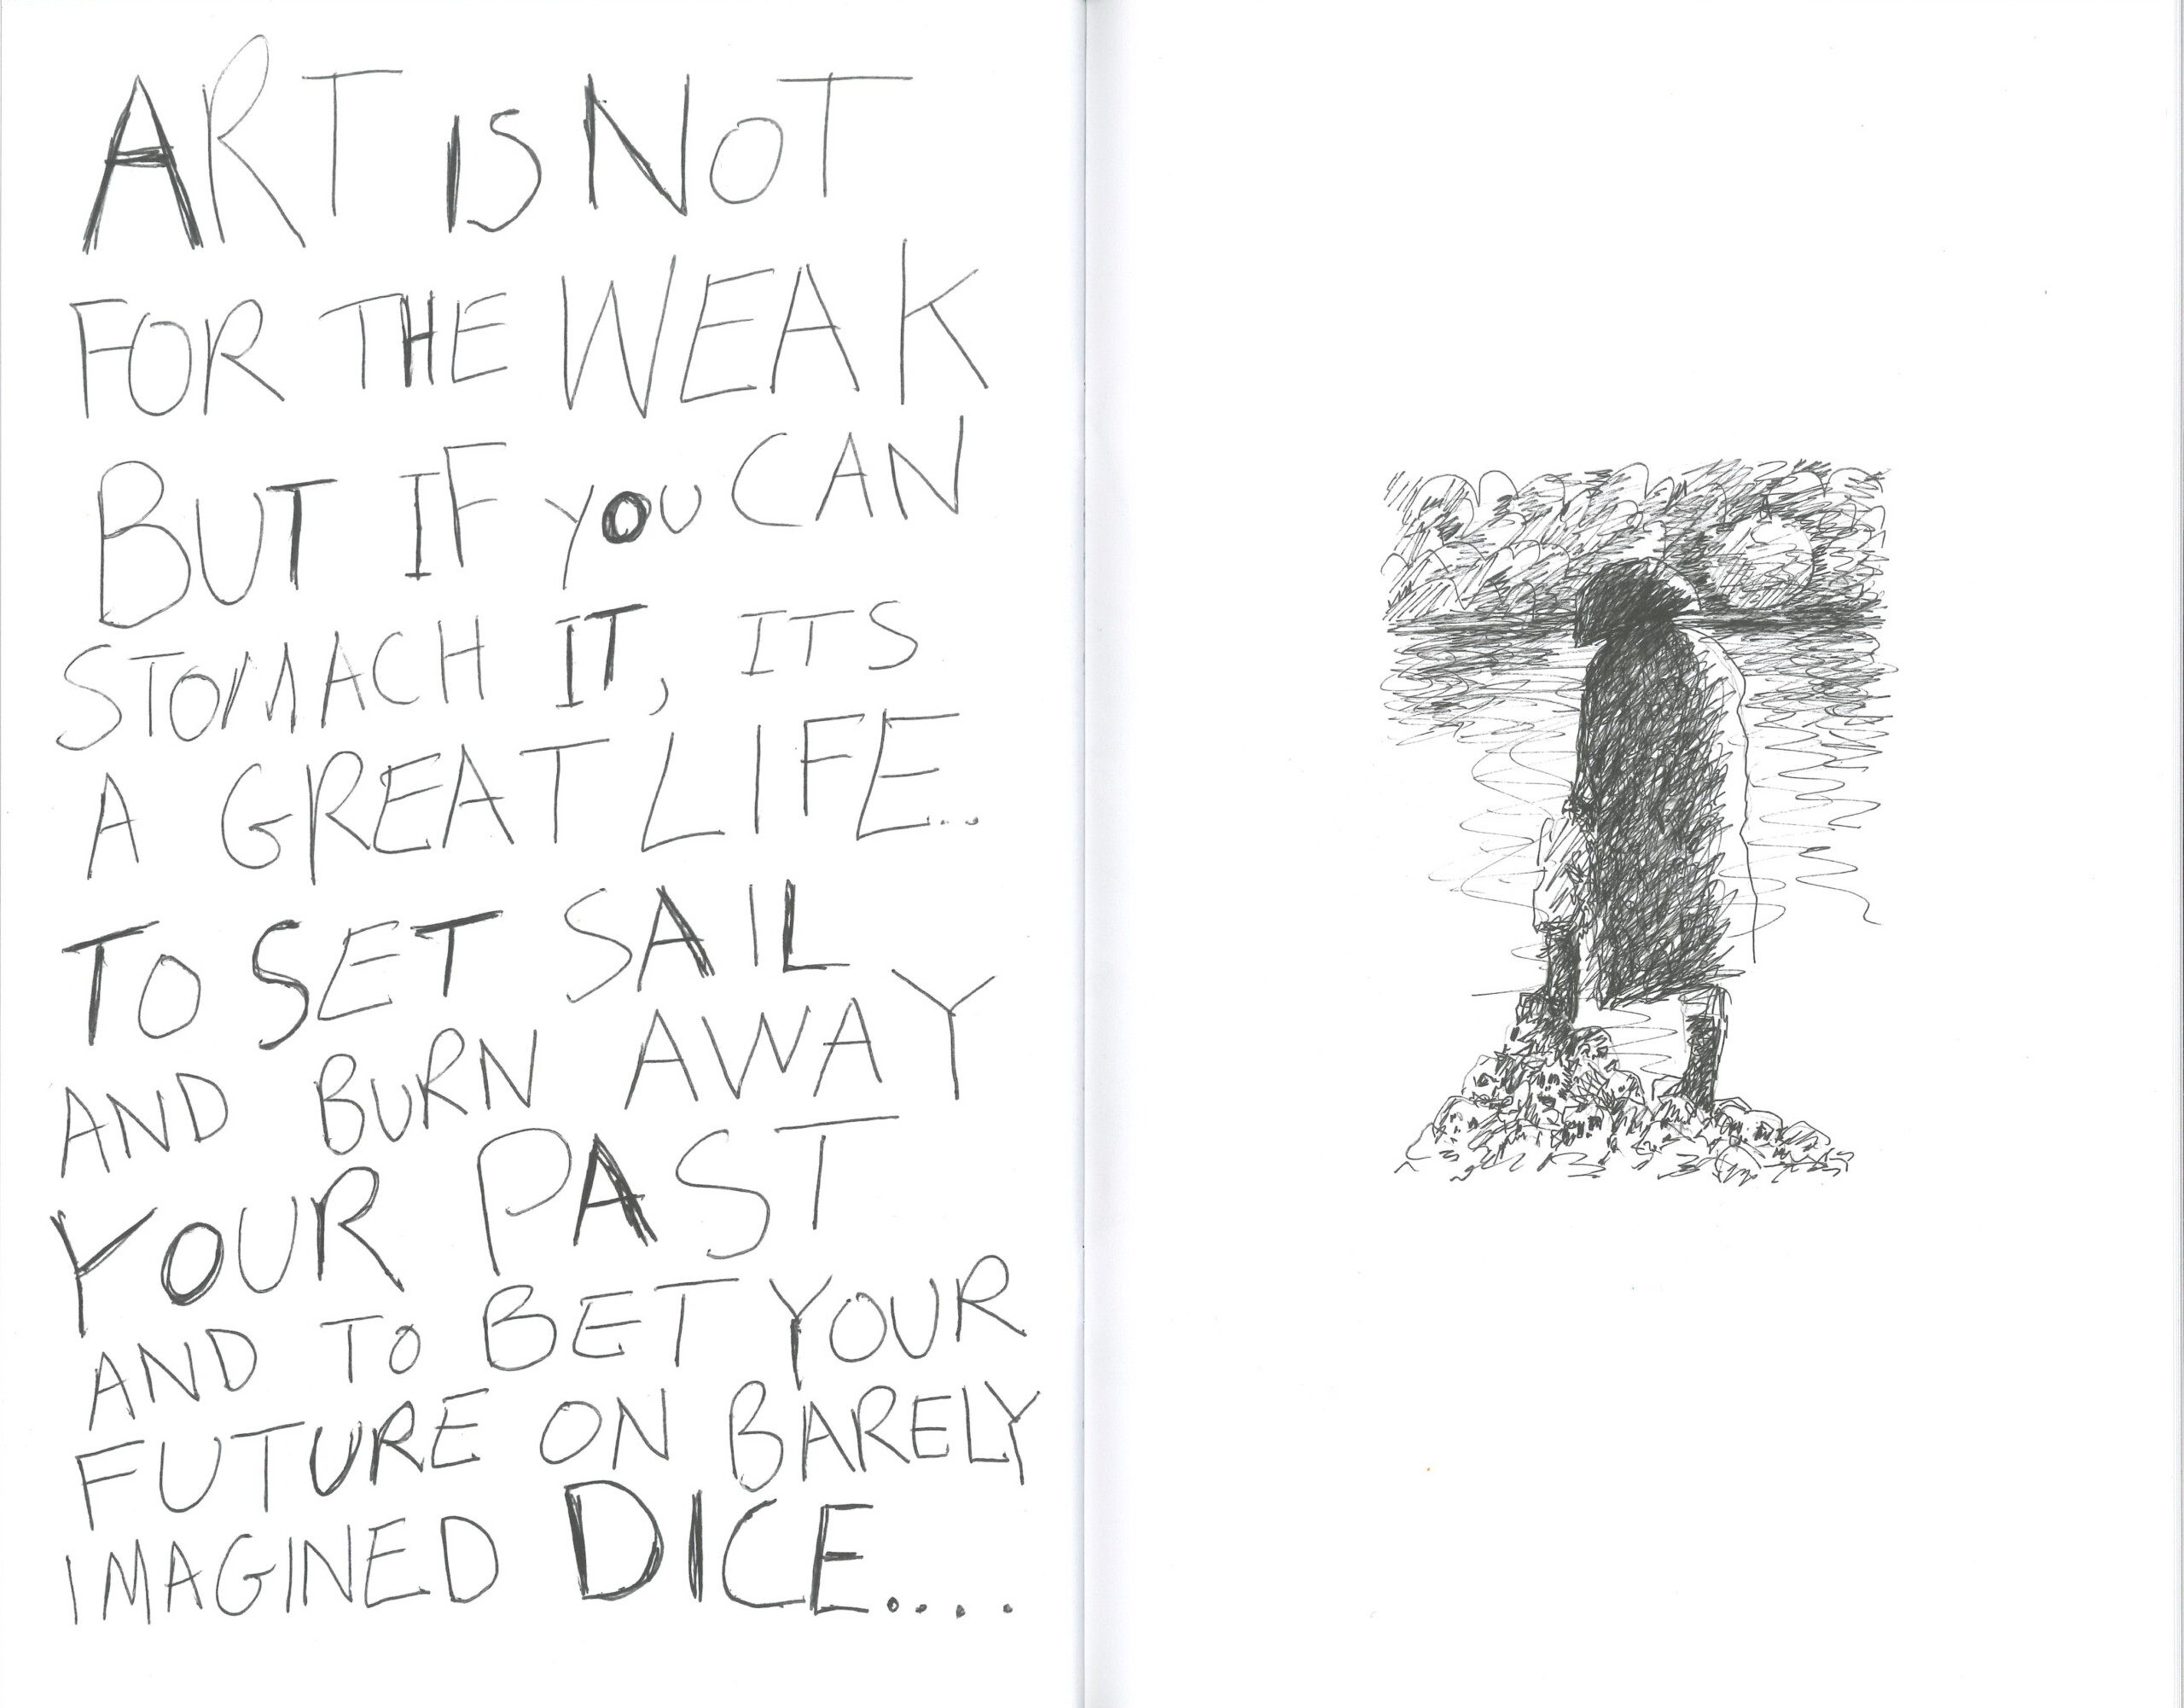 ART IS NOT
FOR THE WEAK
BUT IF YOU CAN
STOMACH IT, ITS
A GREAT LIFE..
TO SET SAIL
AND BURN AWAY
YOUR PAST
AND TO BET YOUR
FUTURE ON BARELY
IMAGINED DICE....